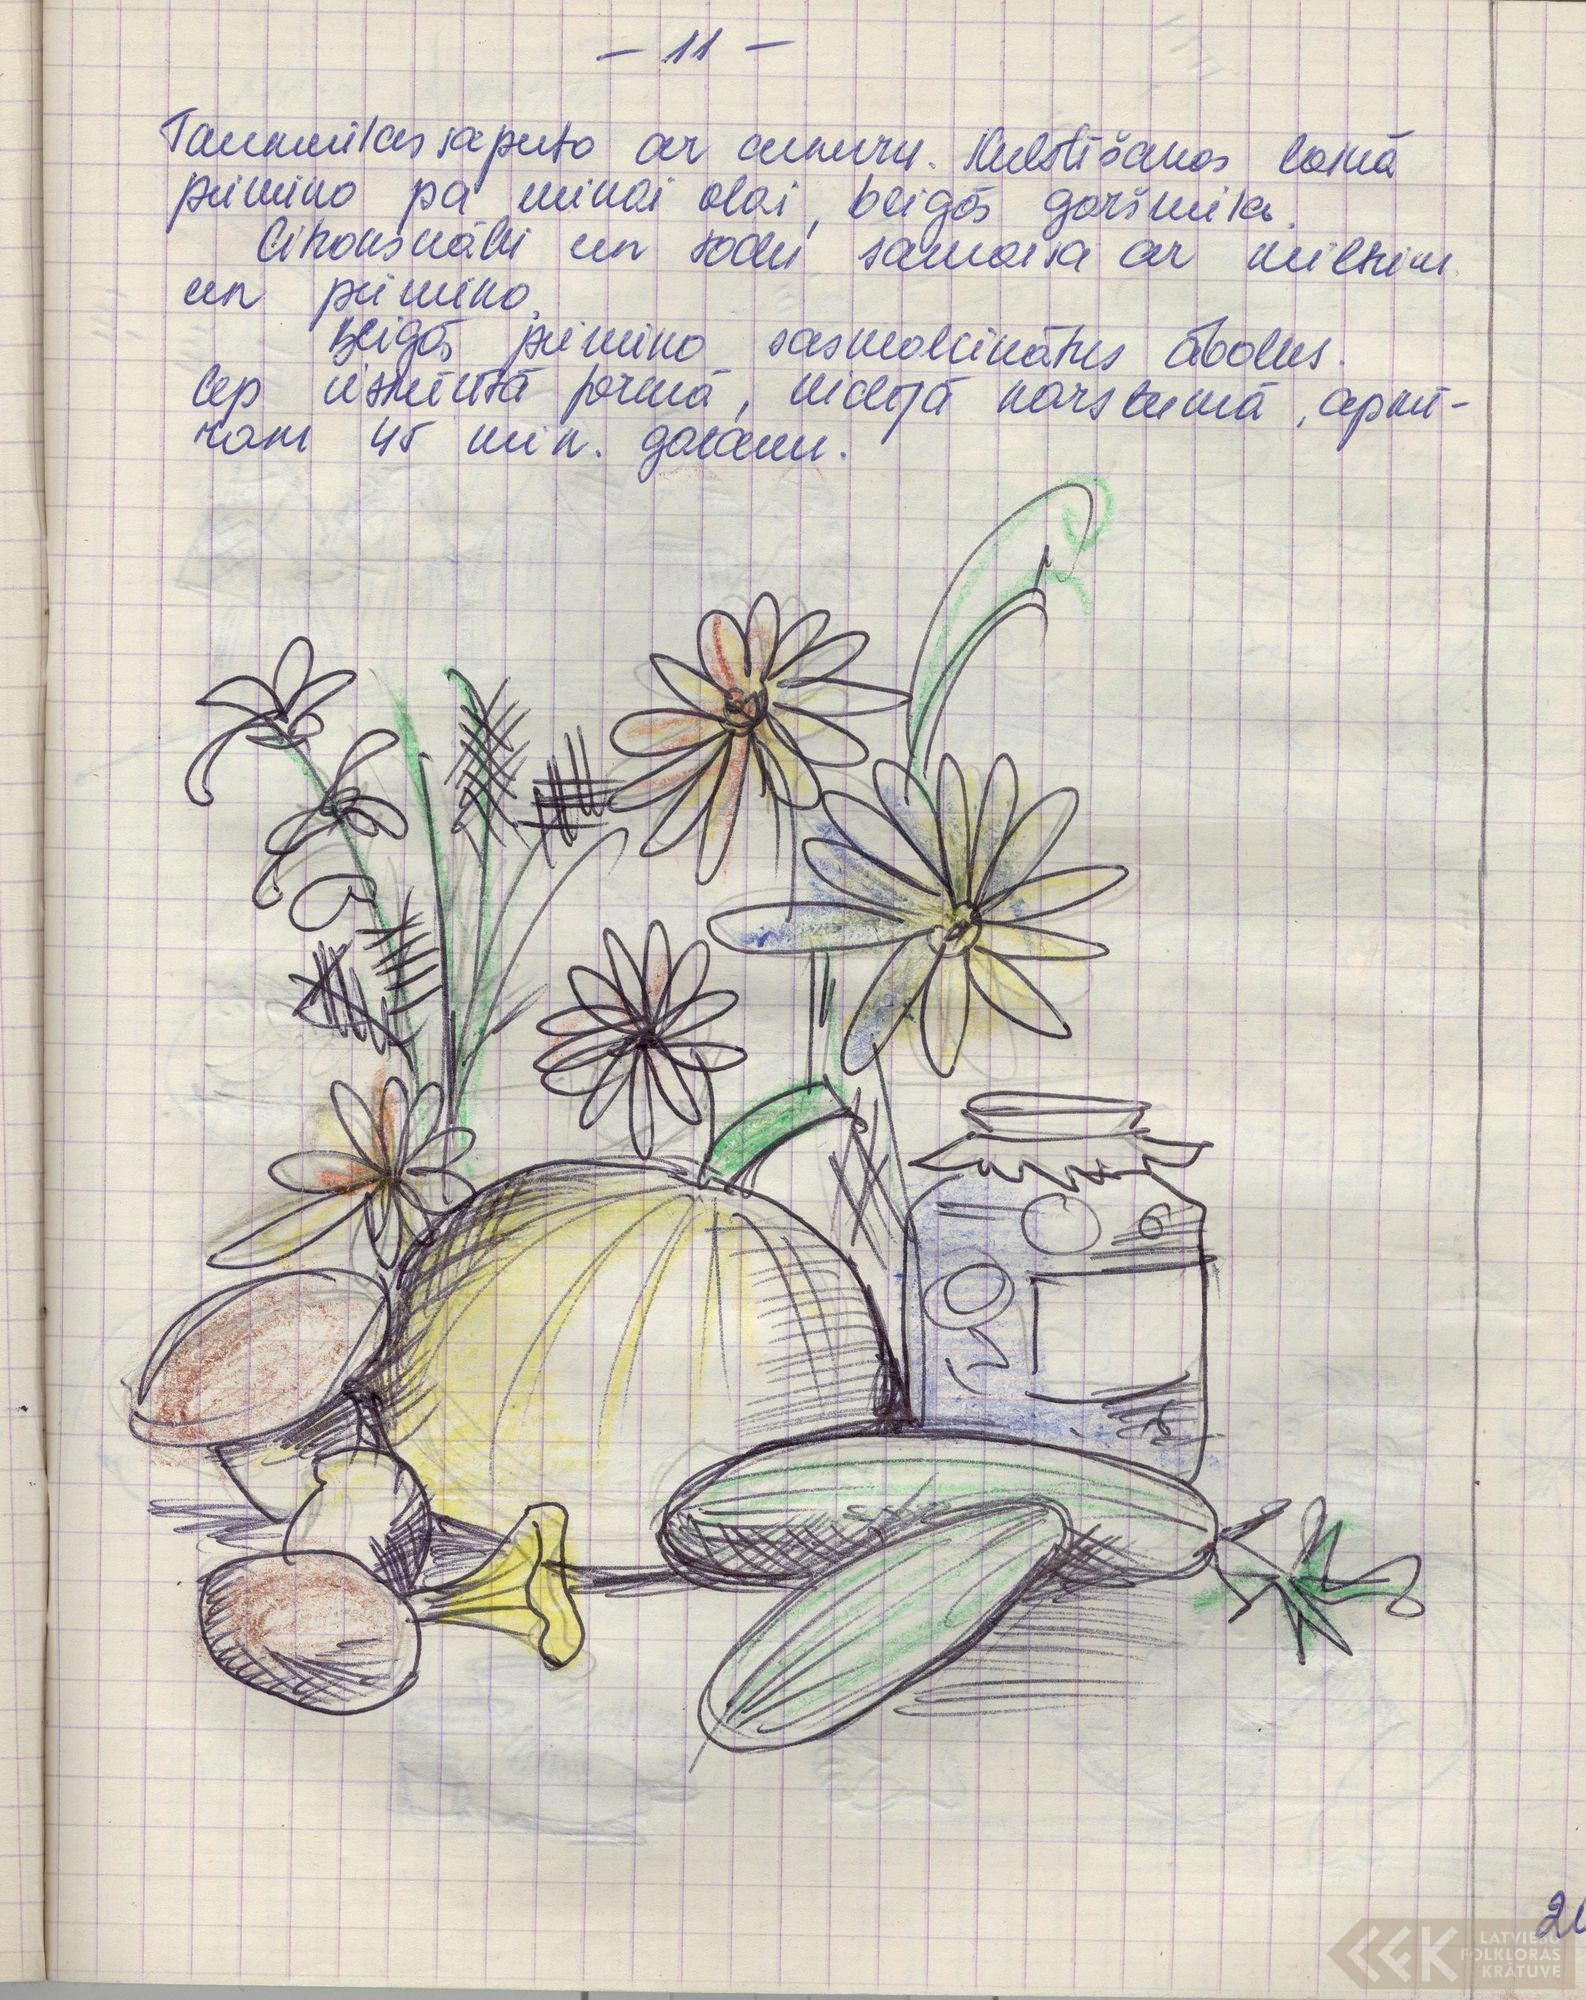 - 11 -
Taukvielas saputo ar cukuru. Kulstīšanas laikā
piemino pa vienai olai, beigās garšvielas.
Citronskābi un sodu samaisa ar miltiem
un piemino.
Beigās piemino sasmalcinātus ābolus.
Cep izsmērētā formā, vidējā karstumā, apmē-
ram 45 min. gatavu.
LATVIEŠU
FOLKLORAS
KRĀTUVE